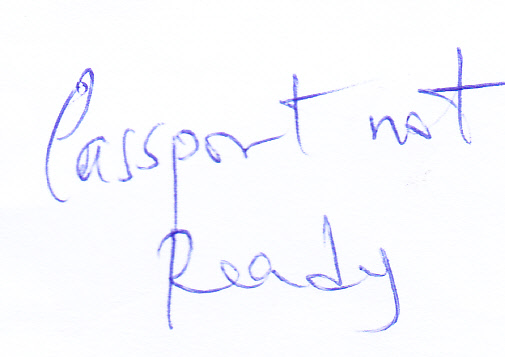 Passport not
Ready